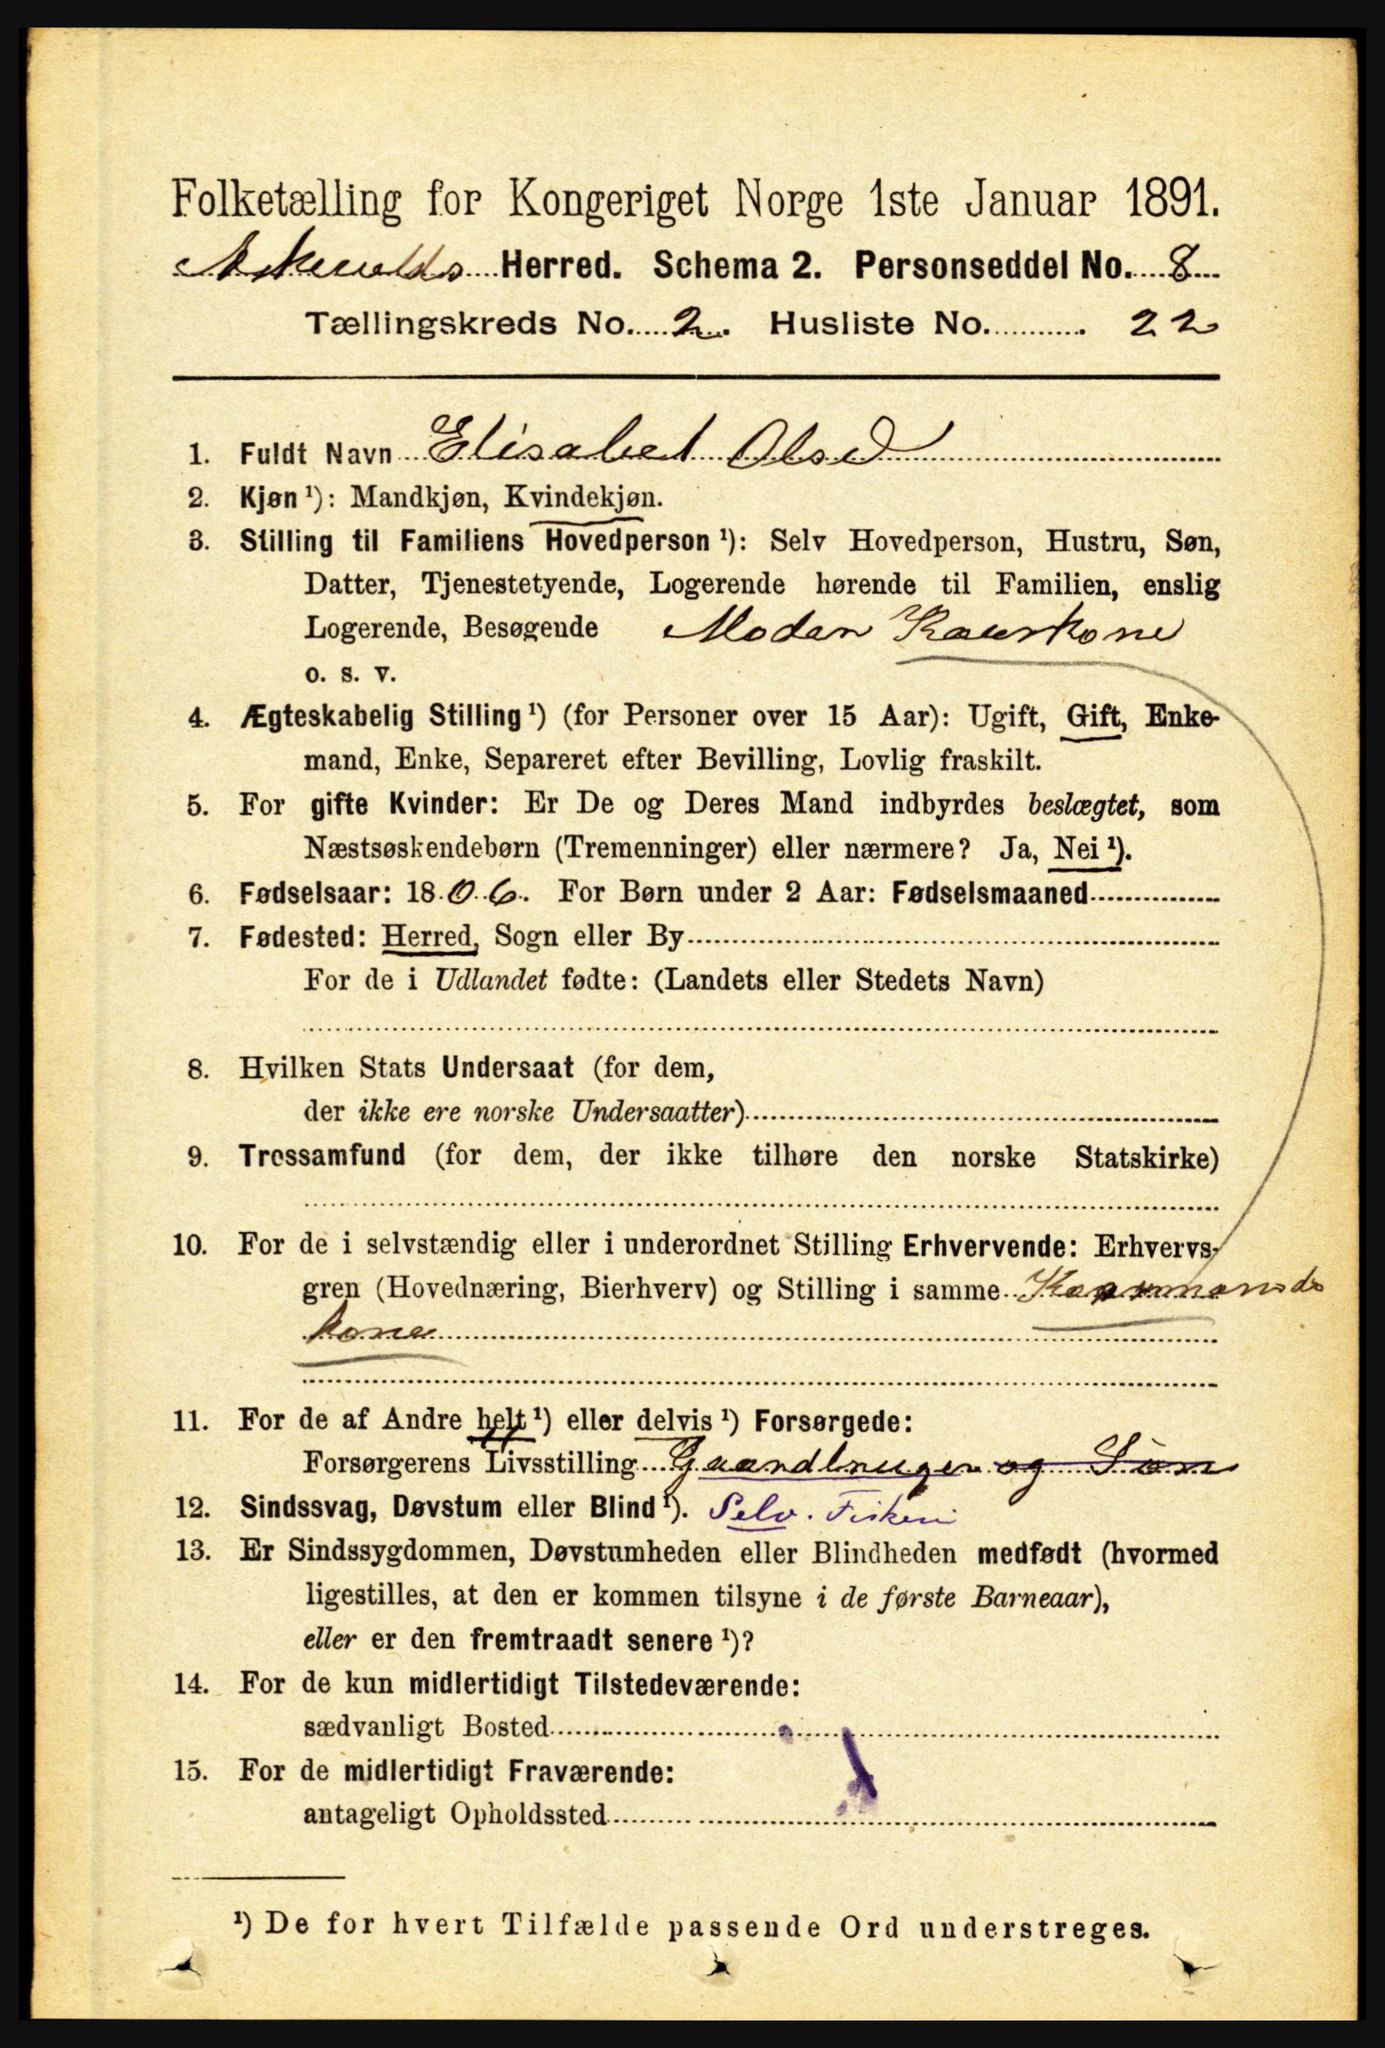 Folketælling for Kongeriget Norge 1ste Januar 1891.
Askevolds Herred. Schema 2. Personseddel No. 8
Tællingskreds No. 2. Husliste No. 22
1. Fuldt Navn Elisabet Olsd
2. Kjøn ¹): Mandkjøn, Kvindekjøn.
3. Stilling til Familiens Hovedperson ¹): Selv Hovedperson, Hustru, Søn,
Datter, Tjenestetyende, Logerende hørende til Familien, enslig
Logerende, Besøgende Moder Kaarkone
o. s. v.
4. Ægteskabelig Stilling ¹) (for Personer over 15 Aar): Ugift, Gift, Enke-
mand, Enke, Separeret efter Bevilling, Lovlig fraskilt.
5. For gifte Kvinder: Er De og Deres Mand indbyrdes beslægtet, som
Næstsøskendebørn (Tremenninger) eller nærmere? Ja, Nei ¹).
6. Fødselsaar: 1806. For Børn under 2 Aar: Fødselsmaaned
7. Fødested: Herred, Sogn eller By
For de i Udlandet fødte: (Landets eller Stedets Navn)
8. Hvilken Stats Undersaat (for dem,
der ikke ere norske Undersaatter)
9. Trossamfund (for dem, der ikke tilhøre den norske Statskirke)
10. For de i selvstændig eller i underordnet Stilling Erhvervende: Erhvervs-
gren (Hovednæring, Bierhverv) og Stilling i samme Kaarmands
kone
11. For de af Andre helt ¹) eller delvis ¹) Forsørgede:
Forsørgerens Livsstilling Gaardbruger og Søn
12. Sindssvag, Døvstum eller Blind ¹). Selv. Fiskeri
13. Er Sindssygdommen, Døvstumheden eller Blindheden medfødt (hvormed
ligestilles, at den er kommen tilsyne i de første Barneaar),
eller er den fremtraadt senere ¹)?
14. For de kun midlertidigt Tilstedeværende:
sædvanligt Bosted
15. For de midlertidigt Fraværende:
antageligt Opholdssted
¹) De for hvert Tilfælde passende Ord understreges.